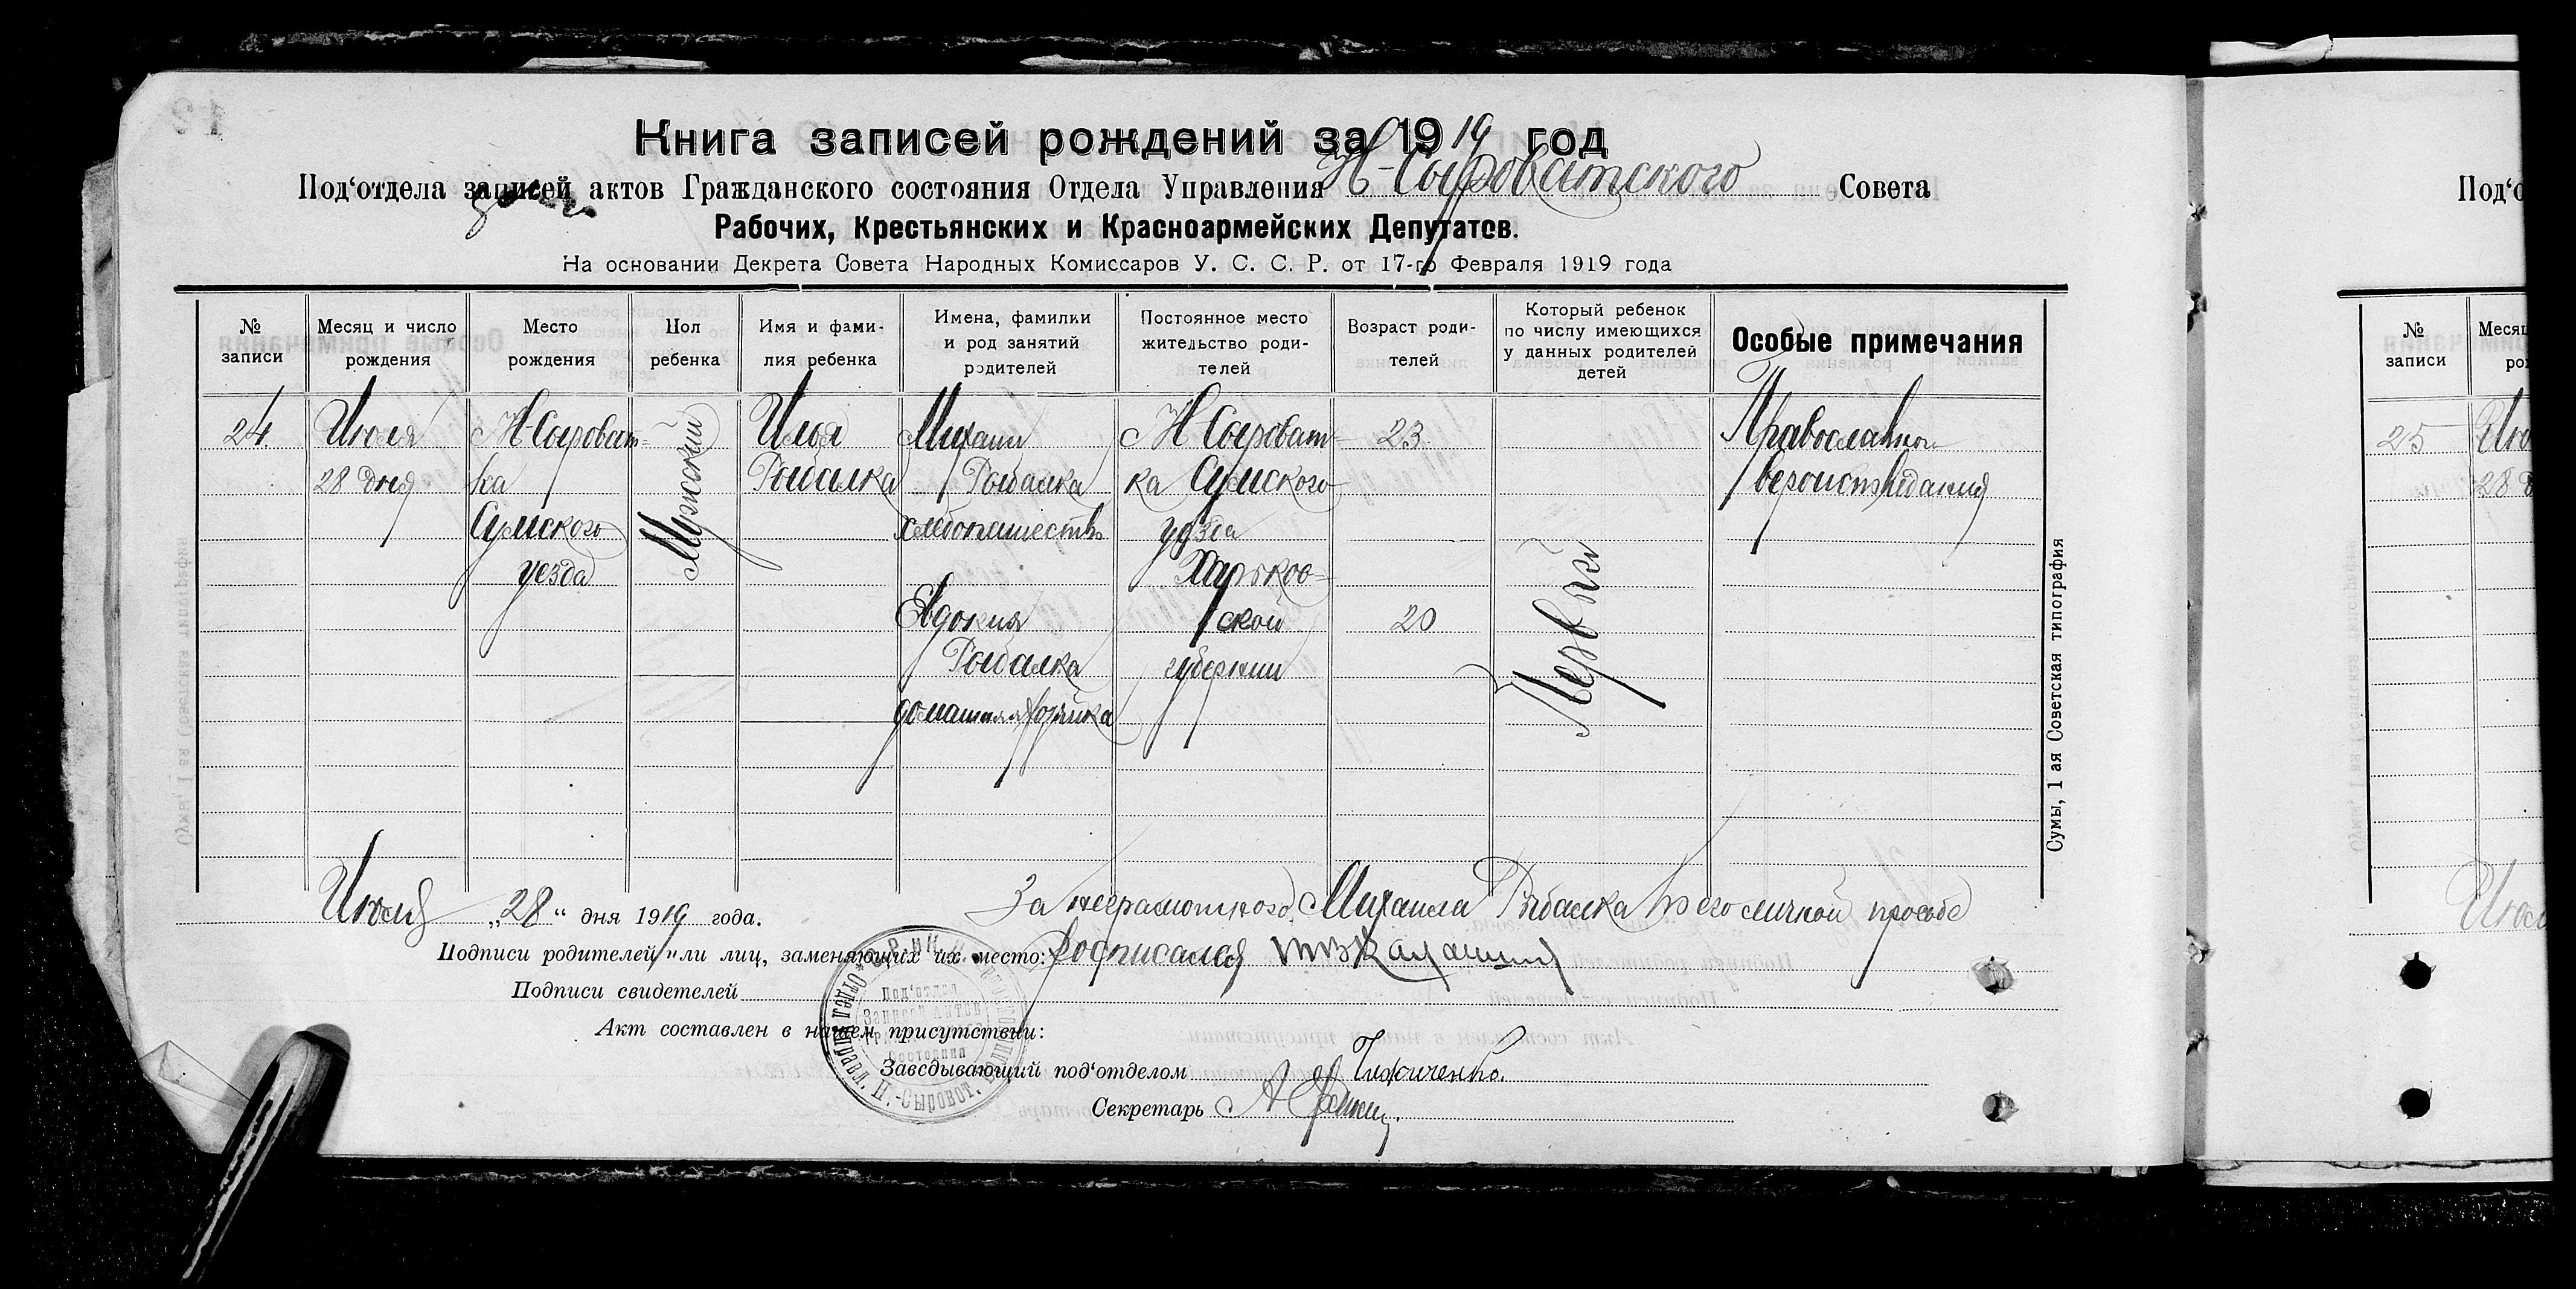 Книга записей рождений за 1919 год
Под‘отдела записей актов Гражданского состояния Отдела Управления Н-Сыроватского Совета
Рабочих, Крестьянских и Красноармейских Депутатов.
На основании Декрета Совета Народных Комиссаров У. С. С. Р. от 17-го Февраля 1919 года
№ записи
Месяц и число рождения
Место рождения
Пол ребенка
Имя и фами-лия ребенка
Имена, фамилии и род занятий родителей
Постоянное место жительство роди-телей
Возраст роди-телей
Который ребенок по числу имеющихся у данных родителей детей
Особые примечания
24.
Июля
28 дня
Н Сыроват=
ка
Сумского
уезда
Мужский
Илья
Рыбалка
Михаил
Рыбалка
хлебопашество
Евдокия
Рыбалка
домашняя хозяйка
Н Сыроват-
ка Сумского
уезда
Харьков=
ской
губернии
23
20
Первый
Православного
вероисповедания
Сумы, 1 ая Советская типография
Июля „28“ дня 1919 года.
За неграмотного Михаила Рыбалка по его личной просьбе
Подписи родителей или лиц, заменяющих их место: росписался
Подписи свидетелей
Акт составлен в нашем присутствии:
Заведывающий под‘отделом
Секретарь
Под‘отдел
Записей Актов
Состояния
Под‘о
№ записи
Месяц
рож
25
Ию
28 д
Июл